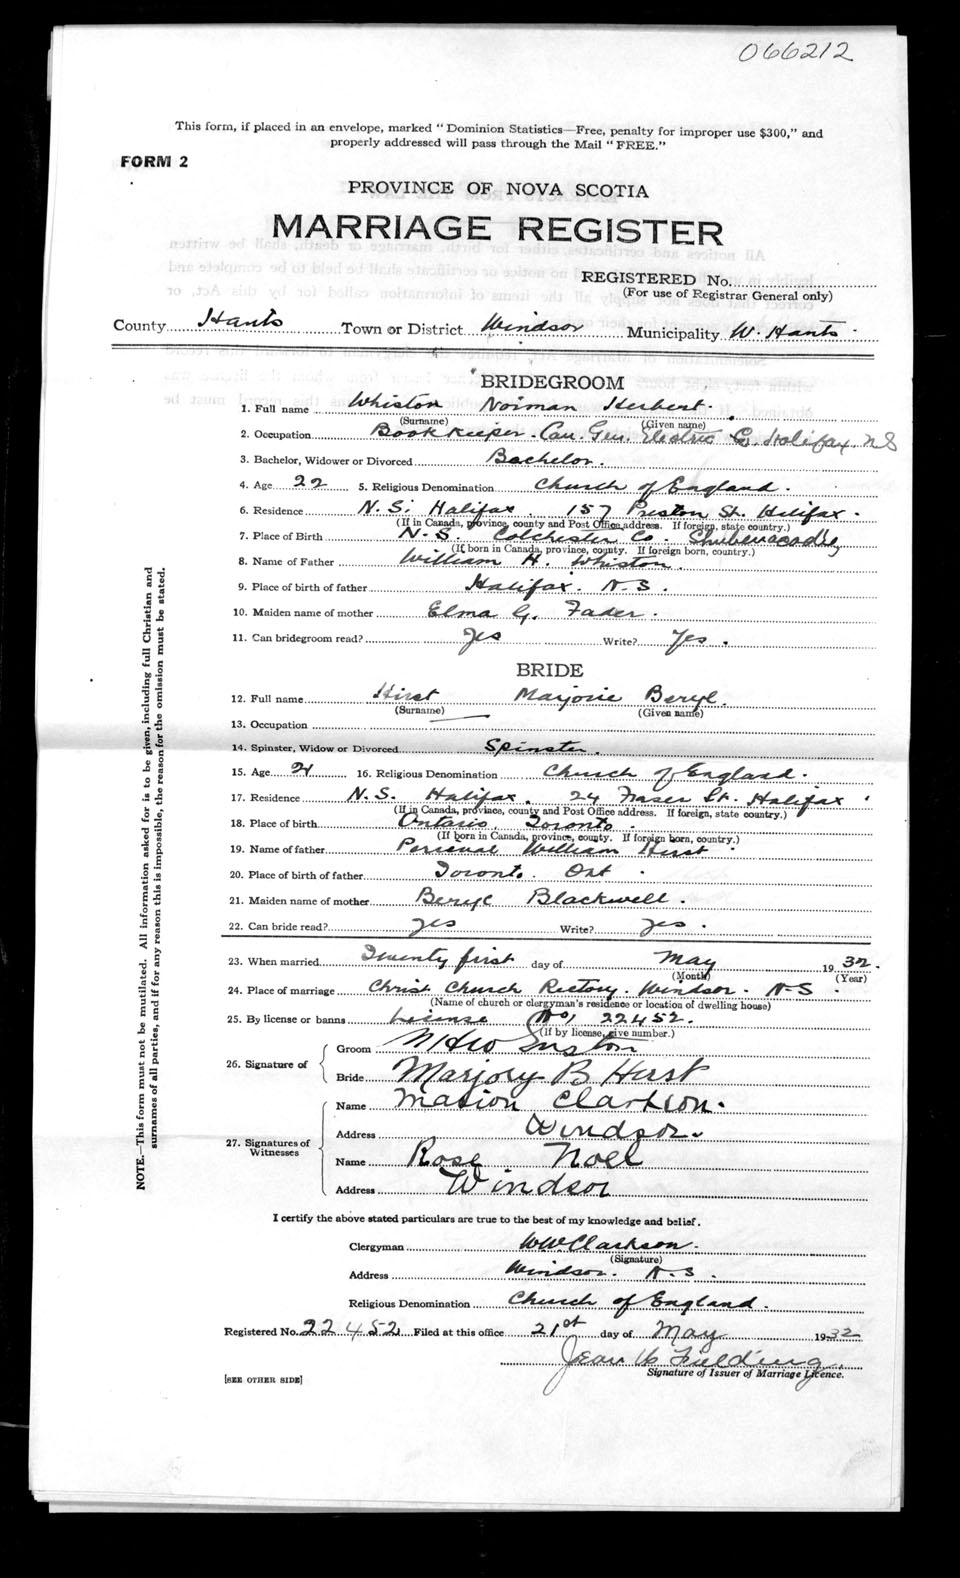 066212
This form, if placed in an envelope, marked "Dominion Statistics—Free, penalty for improper use $300," and
properly addressed will pass through the Mail "FREE."
FORM 2
PROVINCE OF NOVA SCOTIA
MARRIAGE REGISTER
REGISTERED No.
(For use of Registrar General only)
County Hants Town or District Windsor Municipality W. Hants.
BRIDEGROOM
1. Full name Whiston Norman Herbert.
(Surname) (Given name)
2. Occupation Bookkeeper. Can. Gen. Electric Co. Halifax. N.S
3. Bachelor, Widower or Divorced Bachelor.
4. Age 22 5. Religious Denomination Church of England.
6. Residence N.S. Halifax. 157 Preston St. Halifax.
(If in Canada, province, county and Post Office address. If foreign, state country.)
7. Place of Birth N.S. Colchester Co. Shubenacadie
(If born in Canada, province, county. If foreign born, country.)
8. Name of Father William H. Whiston.
9. Place of birth of father Halifax. N.S.
10. Maiden name of mother Elma G. Fader.
11. Can bridegroom read? Yes Write? Yes.
BRIDE
12. Full name Hirst Marjorie Beryl.
(Surname) (Given name)
13. Occupation —
14. Spinster, Widow or Divorced Spinster.
15. Age 21 16. Religious Denomination Church of England.
17. Residence N.S. Halifax. 24 Fraser St. Halifax
(If in Canada, province, county and Post Office address. If foreign, state country.)
18. Place of birth Ontario, Toronto.
(If born in Canada, province, county. If foreign born, country.)
19. Name of father Percival William Hirst.
20. Place of birth of father Toronto. Ont.
21. Maiden name of mother Beryl Blackwell.
22. Can bride read? Yes Write? Yes.
23. When married Twenty first day of May 1932.
(Month) (Year)
24. Place of marriage Christ Church Rectory. Windsor. N.S.
(Name of church or clergyman's residence or location of dwelling house)
25. By license or banns License No, 22452.
(If by license, give number.)
26. Signature of
Groom
Bride Marjory B Hirst
27. Signatures of
Witnesses
Name Marion Clarkson.
Address Windsor.
Name Rose Noel
Address Windsor
I certify the above stated particulars are true to the best of my knowledge and belief.
Clergyman WW Clarkson.
(Signature)
Address Windsor. N.S.
Religious Denomination Church of England.
Registered No. 22452 Filed at this office 21st day of May 1932
Jean Fielding
Signature of Issuer of Marriage Licence.
[SEE OTHER SIDE]
NOTE.—This form must not be mutilated. All information asked for is to be given, including full Christian and
surnames of all parties, and if for any reason this is impossible, the reason for the omission must be stated.